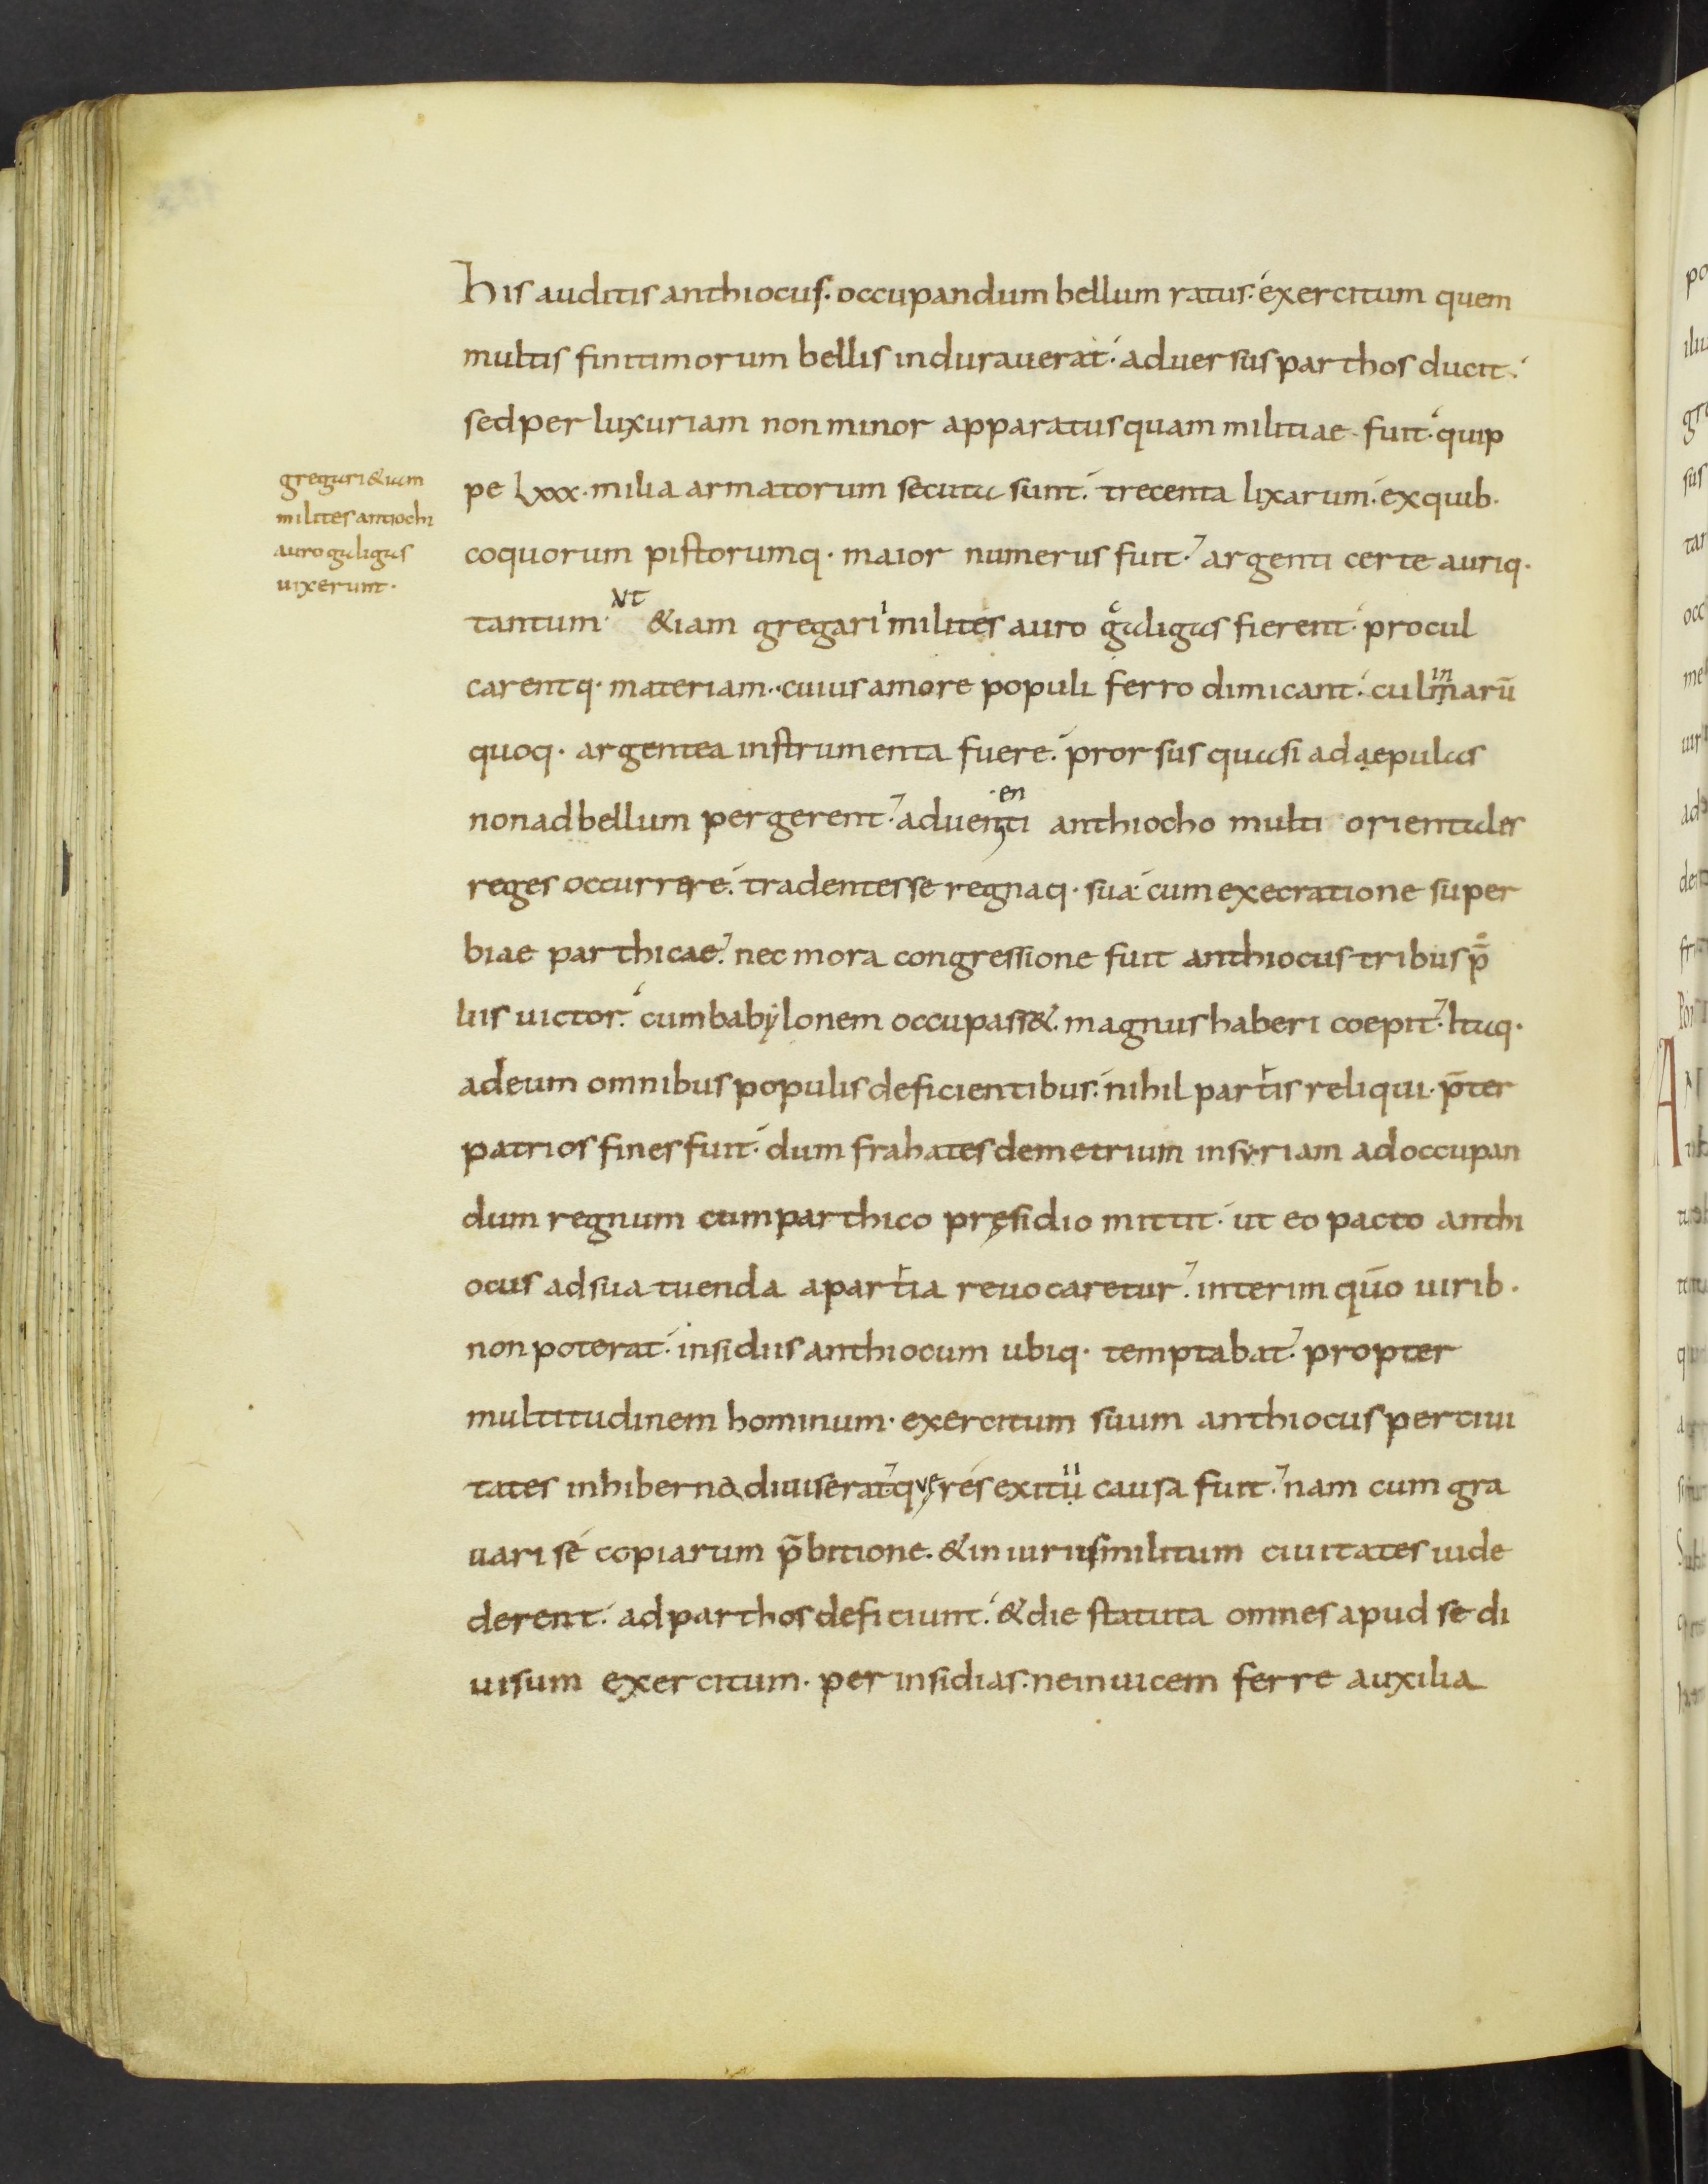 His auditis anthiocus. occupandum bellum ratus. exercitum quem
multis finitimorum bellis indurauerat. aduersus parthos ducit.
sed per luxuriam non minor apparatus quam militiae fuit. quip
pe lxxx. milia armatorum secuta sunt. trecenta lixarum. ex quib.
coquorum pistorumq. maior numerus fuit. argenti certe auriq.
tantum. ut &iam gregarii milites auro caligas fierent. procul
carentq. materiam. cuius amore populi ferro dimicant. culinarū
quoq. argentea instrumenta fuere. prorsus quasi ad aepulas
non ad bellum pergerent. aduenienti anthiocho multi orientales
reges occurrere. tradentes se regnaq. sua cum execratione super
biae parthicae. nec mora congressione fuit anthiocus tribus p̄
liis uictor. cum babylonem occupass&. magnus haberi coepit. Itaq.
ad eum omnibus populis deficientibus. nihil parthis reliqui. p̄ter
patrios fines fuit. dum frahates demetrium in syriam ad occupan
dum regnum cum parthico pręsidio mittit. ut eo pacto anthi
ocus ad sua tuenda a parthia reuocaretur. interim qūo uirib.
non poterat. insidiis anthiocum ubiq. temptabat. propter
multitudinem hominum. exercitum suum anthiocus per ciui
tates in hiberna diuiserat. que res exitii causa fuit. nam cum gra
uari se copiarum p̄bitione. & iniuriis militum ciuitates uide
derent. ad parthos deficiunt. & die statuta omnes apud se di
uisum exercitum. per insidias. ne inuicem ferre auxilia
gregari &iam
milites antiochi
auro galigas
uixerunt.